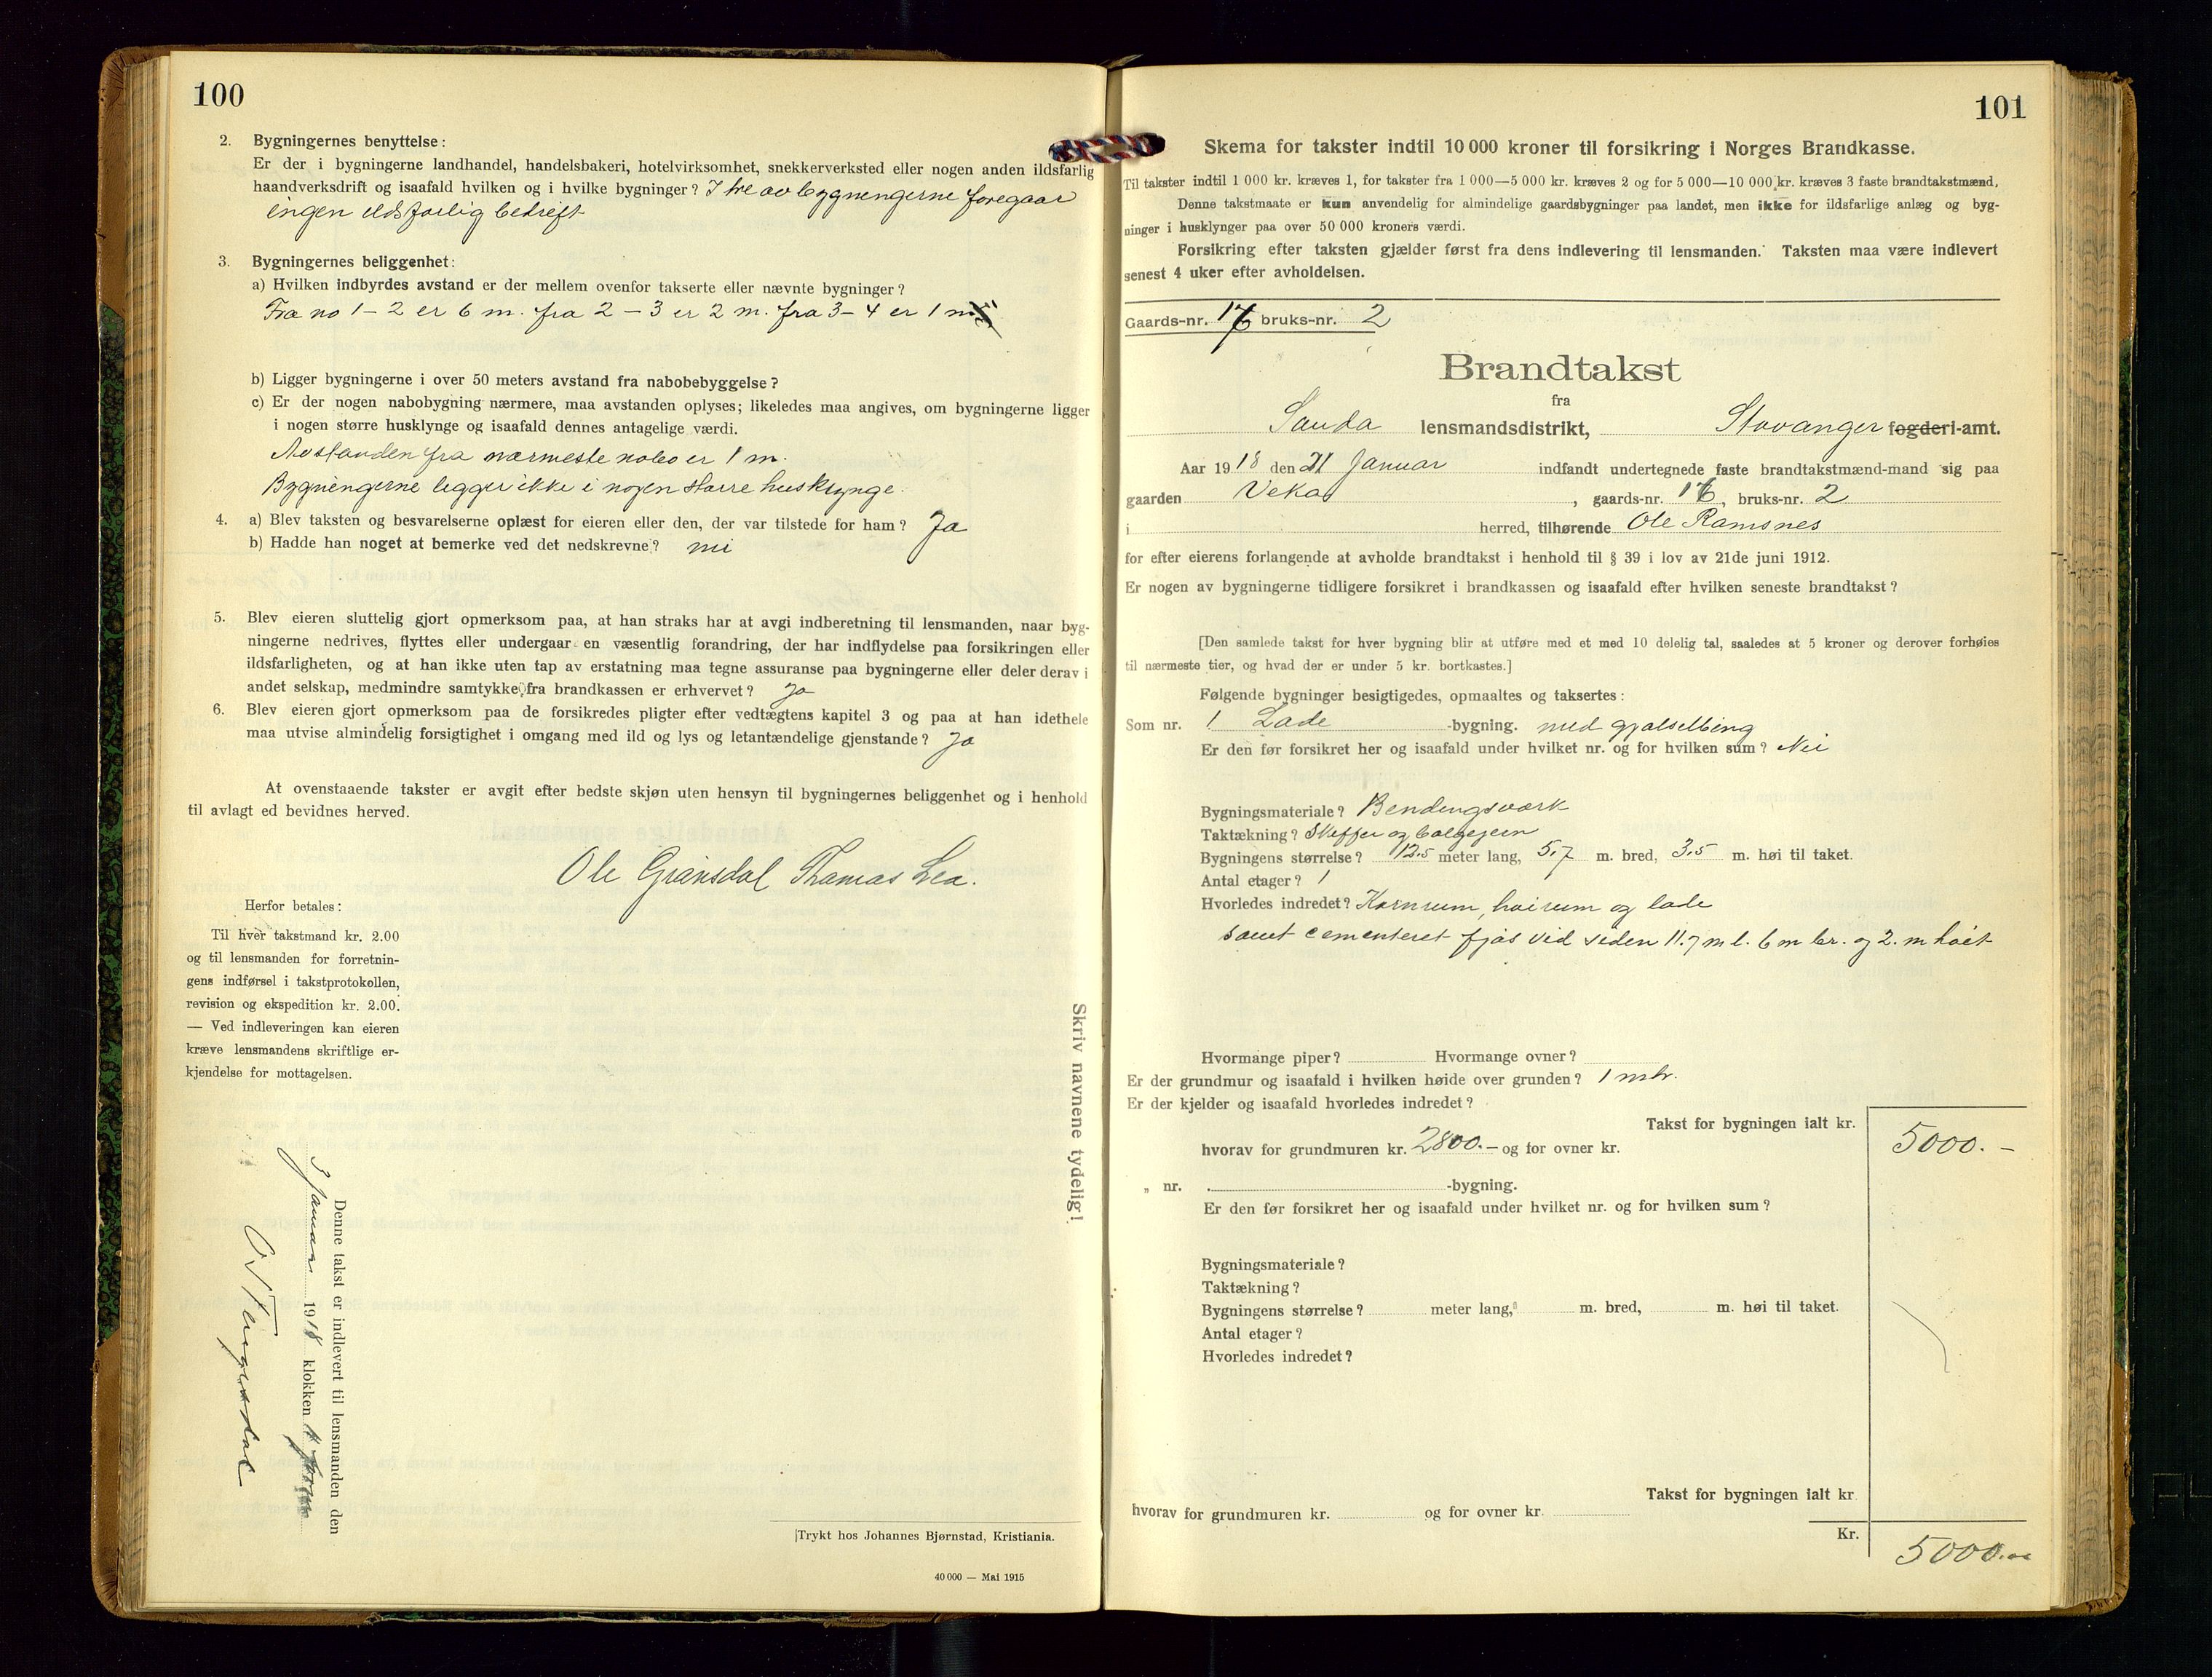 100
2. Bygningernes benyttelse:
Er der i bygningerne landhandel, handelsbakeri, hotelvirksomhet, snekkerverksted eller nogen anden ildsfarlig
haandverksdrift og isaafald hvilken og i hvilke bygninger? I tre av bygningerne foregaar
ingen ildsfarlig bedrift
3. Bygningernes beliggenhet:
a) Hvilken indbyrdes avstand er der mellem ovenfor takserte eller nævnte bygninger?
Fra no 1 – 2 er 6 m. fra 2 – 3 er 2 m. fra 3 – 4 er 1 m
b) Ligger bygningerne i over 50 meters avstand fra nabobebyggelse?
c) Er der nogen nabobygning nærmere, maa avstanden oplyses; likeledes maa angives, om bygningerne ligger
i nogen større husklynge og isaafald dennes antagelige værdi.
Avstanden fra nærmeste nabo er 1 m.
Bygningerne ligger ikke i nogen større husklynge.
4. a) Blev taksten og besvarelserne oplæst for eieren eller den, der var tilstede for ham? Ja
b) Hadde han noget at bemerke ved det nedskrevne? nei
5. Blev eieren sluttelig gjort opmerksom paa, at han straks har at avgi indberetning til lensmanden, naar byg-
ningerne nedrives, flyttes eller undergaar en væsentlig forandring, der har indflydelse paa forsikringen eller
ildsfarligheten, og at han ikke uten tap av erstatning maa tegne assuranse paa bygningerne eller deler derav i
andet selskap, medmindre samtykke fra brandkassen er erhvervet? Ja
6. Blev eieren gjort opmerksom paa de forsikredes pligter efter vedtægtens kapitel 3 og paa at han idethele
maa utvise almindelig forsigtighet i omgang med ild og lys og letantændelige gjenstande? Ja
At ovenstaaende takster er avgit efter bedste skjøn uten hensyn til bygningernes beliggenhet og i henhold
til avlagt ed bevidnes herved.
Ole Gransdal Thomas Lea.
Herfor betales:
Til hver takstmand kr. 2.00
og til lensmanden for forretnin-
gens indførsel i takstprotokollen,
revision og ekspedition kr. 2.00.
— Ved indleveringen kan eieren
kræve lensmandens skriftlige er-
kjendelse for mottagelsen.
Skriv navnene tydelig!
Denne takst er indlevert til lensmanden den
3 Januar 1918 klokken 11 form
Trykt hos Johannes Bjørnstad, Kristiania.
40 000 — Mai 1915
101
Skema for takster indtil 10 000 kroner til forsikring i Norges Brandkasse.
Til takster indtil 1 000 kr. kræves 1, for takster fra 1 000—5 000 kr. kræves 2 og for 5 000—10 000 kr. kræves 3 faste brandtakstmænd.
Denne takstmaate er kun anvendelig for almindelige gaardsbygninger paa landet, men ikke for ildsfarlige anlæg og byg-
ninger i husklynger paa over 50 000 kroners værdi.
Forsikring efter taksten gjælder først fra dens indlevering til lensmanden. Taksten maa være indlevert
senest 4 uker efter avholdelsen.
Gaards-nr. 17 bruks-nr. 2
Brandtakst
fra
Sauda lensmandsdistrikt, Stavanger fogderi-amt.
Aar 1918 den 21 Januar indfandt undertegnede faste brandtakstmænd-mand sig paa
gaarden Veka, gaards-nr. 16, bruks-nr. 2
i herred, tilhørende Ole Ramsnes
for efter eierens forlangende at avholde brandtakst i henhold til § 39 i lov av 21de juni 1912.
Er nogen av bygningerne tidligere forsikret i brandkassen og isaafald efter hvilken seneste brandtakst?
[Den samlede takst for hver bygning blir at utføre med et med 10 delelig tal, saaledes at 5 kroner og derover forhøies
til nærmeste tier, og hvad der er under 5 kr. bortkastes.]
Følgende bygninger besigtigedes, opmaaltes og taksertes:
Som nr. 1 Lade -bygning. med gjødselbing
Er den før forsikret her og isaafald under hvilket nr. og for hvilken sum? Nei
Bygningsmateriale? Bendingsværk
Taktækning? Skiffer og bølgejern
Bygningens størrelse? 12.5 meter lang, 5.7 m. bred, 3.5 m. høi til taket.
Antal etager? 1
Hvorledes indredet? Kornrum, høirum og lade
samt cementeret fjøs ved siden 11.7 m l. 6 m br. og 2. m høit
Hvormange piper? Hvormange ovner?
Er der grundmur og isaafald i hvilken høide over grunden? 1 mtr.
Er der kjelder og isaafald hvorledes indredet?
Takst for bygningen ialt kr. 5000.–
hvorav for grundmuren kr. 2800.– og for ovner kr.
„ nr. -bygning.
Er den før forsikret her og isaafald under hvilket nr. og for hvilken sum?
Bygningsmateriale?
Taktækning?
Bygningens størrelse? meter lang, m. bred, m. høi til taket.
Antal etager?
Hvorledes indredet?
Takst for bygningen ialt kr.
hvorav for grundmuren kr. og for ovner kr.
Kr. 5000.00